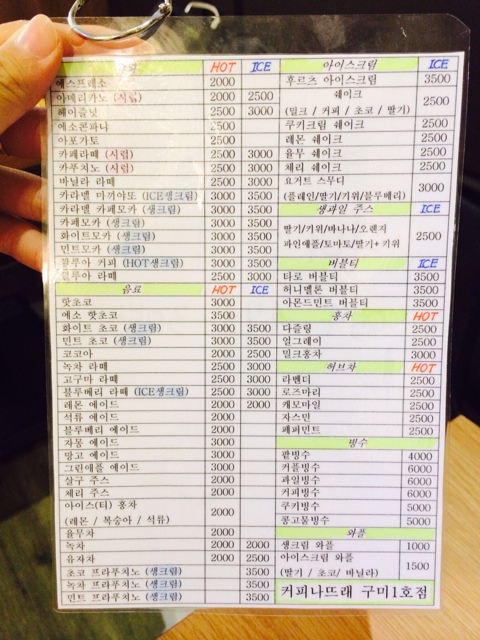 HOT ICE
에스프레소 2000
아메리카노 (시럽) 2000 2500
헤이즐넛 2500 3000
에소콘파나 2500
아포가토 2500
카페라떼 (시럽) 2500 3000
카푸치노 (시럽) 2500 3000
바닐라 라떼 2500 3000
카라멜 마끼야또 (ICE생크림) 3000 3500
카라멜 카페모카 (생크림) 3000 3500
카페모카 (생크림) 3000 3500
화이트모카 (생크림) 3000 3500
민트모카 (생크림) 3000 3500
깔루아 커피 (HOT생크림) 3000 3500
깔루아 라떼 2500 3000
음료 HOT ICE
핫초코 3000
에소 핫초코 3500
화이트 초코 (생크림) 3000 3500
민트 초코 (생크림) 3000 3500
코코아 2000 2500
녹차 라떼 2500 3000
고구마 라떼 2500 3000
블루베리 라떼 (ICE생크림) 2500 3000
레몬 에이드 2000 2000
석류 에이드 2000
블루베리 에이드 2000
자몽 에이드 3000
망고 에이드 3000
그린애플 에이드 3000
살구 주스 2000
체리 주스 2000
아이스(티) 홍차
(레몬 / 복숭아 / 석류) 2000
율무차 2000
녹차 2000 2000
유자차 2000 2500
초코 프라푸치노 (생크림) 3500
녹차 프라푸치노 (생크림) 3500
민트 프라푸치노 (생크림) 3500
아이스크림 ICE
후르츠 아이스크림 3500
쉐이크
(밀크 / 커피 / 초코 / 딸기) 2500
쿠키크림 쉐이크 2500
레몬 쉐이크 2500
율무 쉐이크 2500
체리 쉐이크 2500
요거트 스무디
(플레인/딸기/키위/블루베리) 3000
생과일 주스 ICE
딸기/키위/바나나/오렌지
파인애플/토마토/딸기+키위 2500
버블티 ICE
타로 버블티 3500
허니멜론 버블티 3500
아몬드민트 버블티 3500
홍차 HOT
다즐링 2500
얼그레이 2500
밀크홍차 3000
허브차 HOT
라벤더 2500
로즈마리 2500
캐모마일 2500
자스민 2500
페퍼민트 2500
빙수
팥빙수 4000
커플빙수 6000
과일빙수 6000
커피빙수 6000
쿠키빙수 5000
콩고물빙수 5000
와플
생크림 와플 1000
아이스크림 와플
(딸기 / 초코/ 바닐라) 1500
커피나뜨래 구미1호점